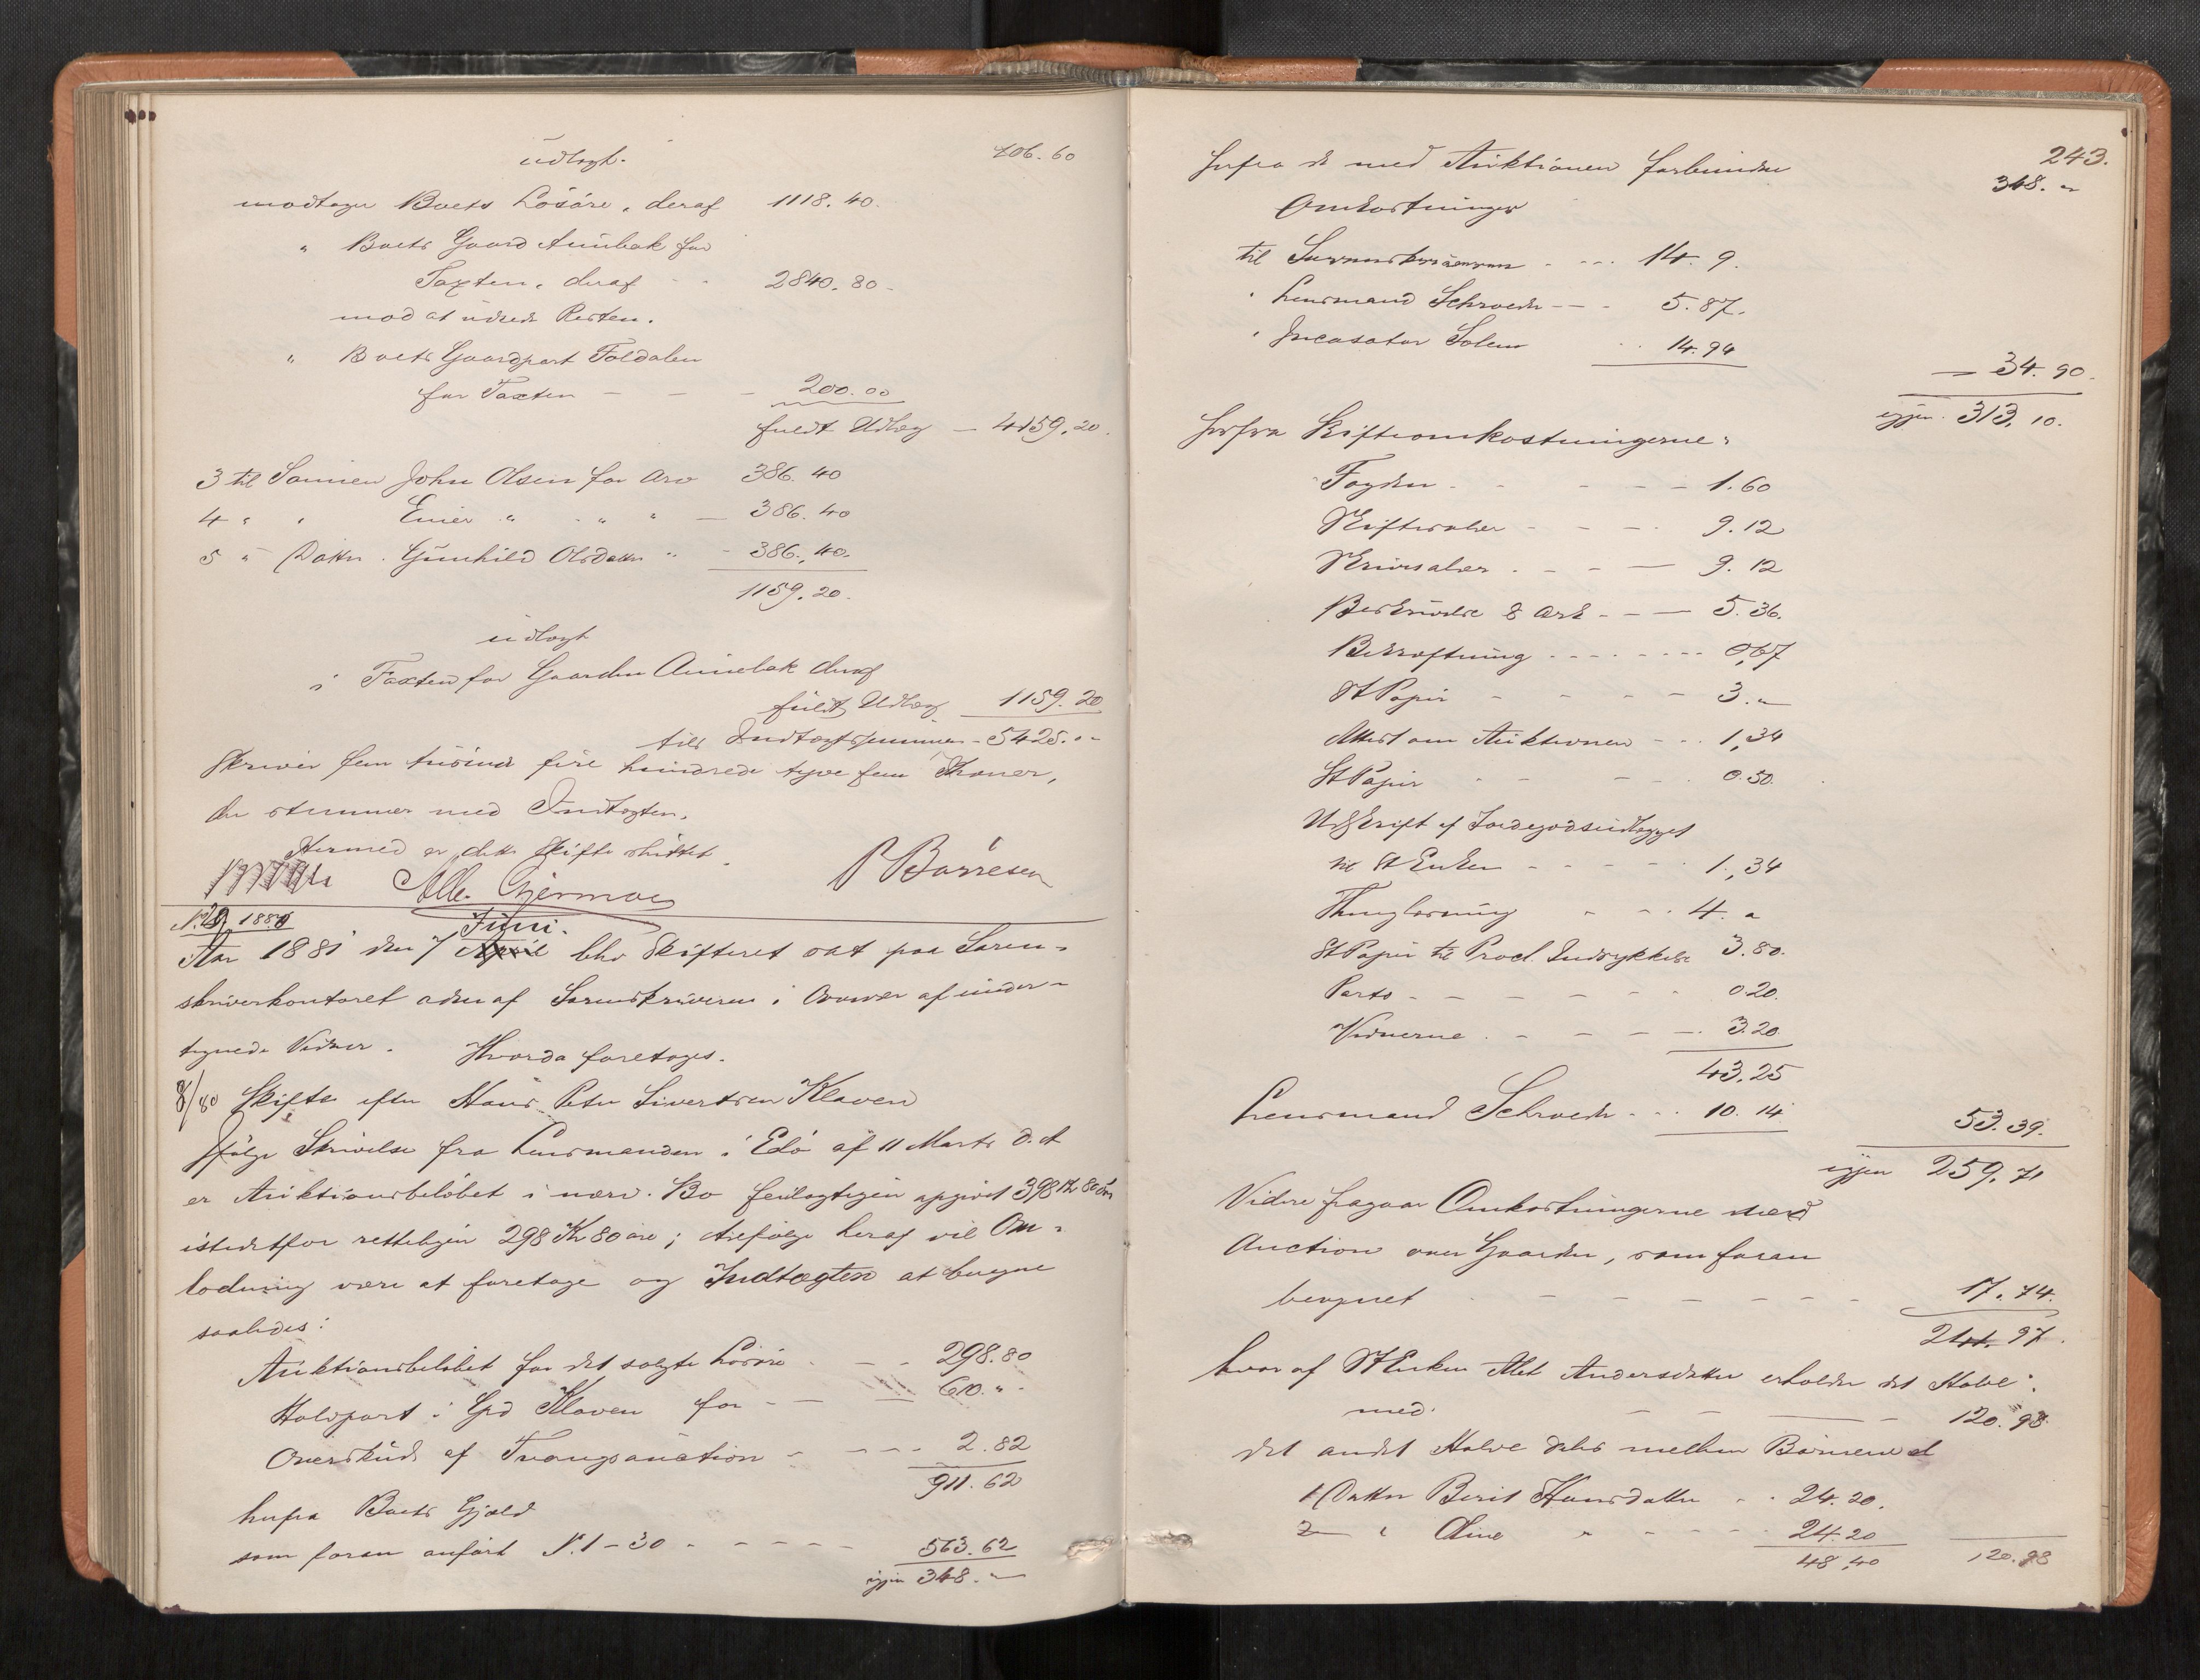 udlagt. 106.60
modtager Boets Løsøre, deraf 1118.40.
" Boets Gaard Aunbak for
Taxten, deraf - - 2840.80 -
mod at udrede Resten.
" Boets Gaardpart Foldalen
for Taxten - - - 200.00
fuldt Udlæg - 4159.20.
3 til Sønnen John Olsen for Arv 386.40
4 " " Einer " " " - 386.40
5 " Dattr. Gunhild Olsdatter " - 386.40.
1159.20.
udlagt
i Taxten for Gaarden Aunebak deraf
fuldt Udlæg 1159.20
tils Indtægtssummen - 5425. " -
skriver fem tusinde fire hundrede tyve fem Kroner,
der stemmer med Indtægten.
Hermed er dette Skifte sluttet.
P Børresen
N. 29. 1880
Juni.
Aar 1881 den 7 April blev Skifteret sat paa Soren-
skriverkontoret adm af Sorenskriveren i Overvær af under-
tegnede Vidner. Hvorda foretoges.
8/80 Skifte efter Hans Peter Sivertsen Klaven
Ifølge Skrivelse fra Lensmanden i Edø af 11 Marts d. A
er Auktionsbeløbet i nærv. Bo feilagtigen opgivet 398 Kr 80 Øre
istedetfor retteligen 298 Kr 80 øre; Ifølge heraf vil Om-
lodning være at foretage og Indtægten at beregne
saaledes:
Auktionsbeløbet for det solgte Løsøre - - 298.80
Halvpart i Grd Klaven for - - - 610. " -
Overskud af Tvangsauction - - - - 2.82
911.62
herfra Boets Gjæld
som foran anført N. 1-30 - - - - - 563.62
igjen 348. " -
243.
Herfra de med Auktionen forbundne 348. "
Omkostninger
til Sorenskriveren - - - 14.9.
" Lensmand Schroeder - - - 5.87.
" Incasator Solem - - 14.94
- 34.90.
igjen 313.10.
Herfra Skifteomkostningerne:
Fogden - - - - - 1.60
Skiftesaler - - - - 9.12
Skrivsaler - - - - 9.12
Beskrivelse 8 Ark - - - 5.36.
Bekræftning - - - - - 0,67
St Papir - - - - - 3. "
Attest om Auktionen - - - 1,34
St Papir - - - - 0.50.
Udskrift af Jordegodsudlægget
til St Enken - - - - - 1.,34
Thinglæsning " - - 4. "
St Papir til Procl. Indrykkelse 3.80.
Porto - - - - - - - 0.20.
Vidnerne - - - - - 3.20.
43.25
Lensmand Schroeder - - - 10.14.
53.39.
igjen 259.71
Videre fragaar Omkostningerne med
Auction over Gaarden, som foran
beregnet - - - - - - - 17.74.
241.97.
hvoraf St Enken Alet Andersdatter erholder det Halve
med - - - - 120.98.
det andet Halve deles mellem Børnene
1 Dattr Berit Hansdatter - - 24.20.
2 - " Oline " - - - - 24.20
48,40 120.98